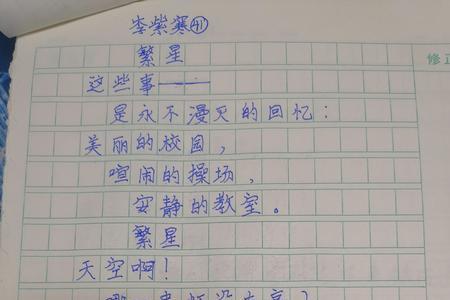 李紫寒㊶
繁星
这些事——
是永不漫灭的回忆:
美丽的校园,
喧闹的操场,
安静的教室。
繁星
天空啊!
修正